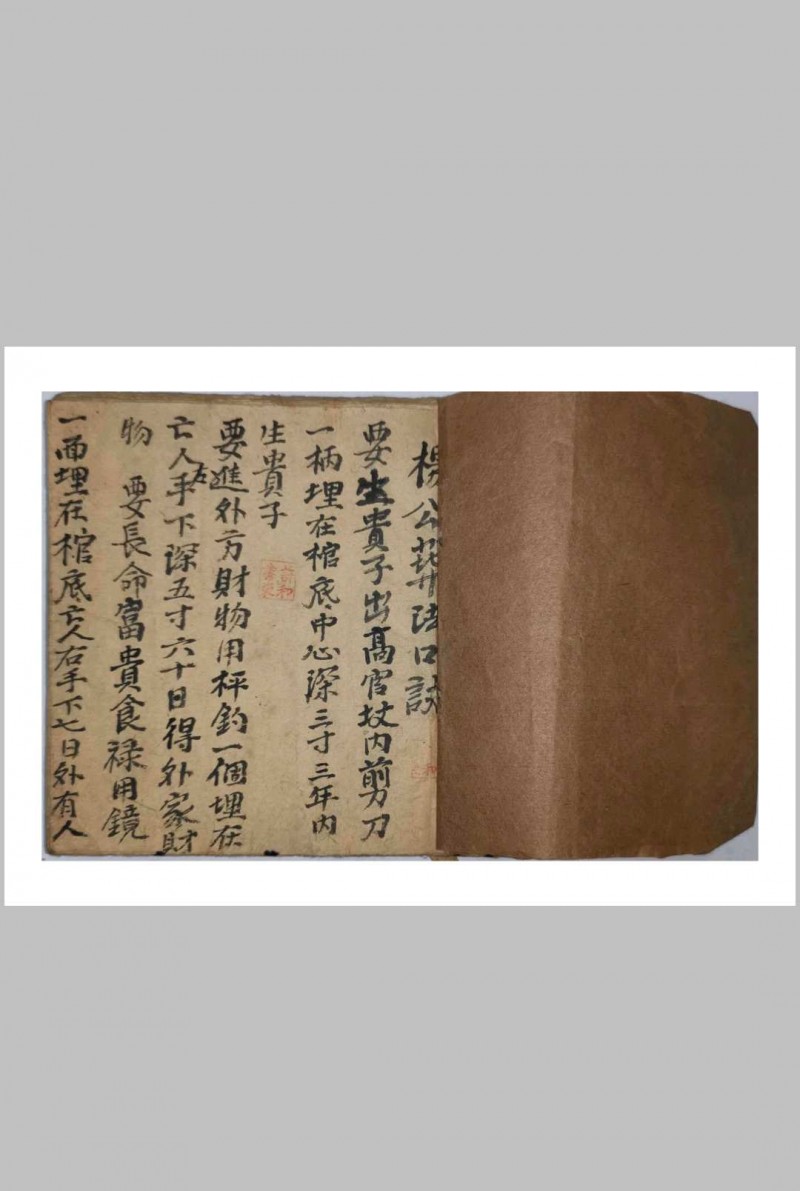 楊公葬法口訣
要生貴子出髙官坟内剪刀
一柄埋在棺底中心深三寸三年内
生貴子
要進外方財物用秤鈎一個埋在
亡人左手下深五寸六十日得外家財
物 要長命富貴食禄用鏡
一面埋在棺底亡人右手下七日外有人